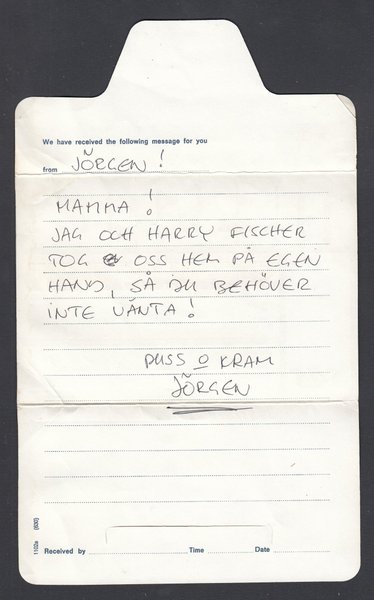 We have received the following message for you
from JÖRGEN!
MAMMA!
JAG OCH HARRY FISCHER
TOG OSS HEM PÅ EGEN
HAND, SÅ DU BEHÖVER
INTE VÄNTA!
PUSS O KRAM
JÖRGEN
1102a (630)
Received by Time Date